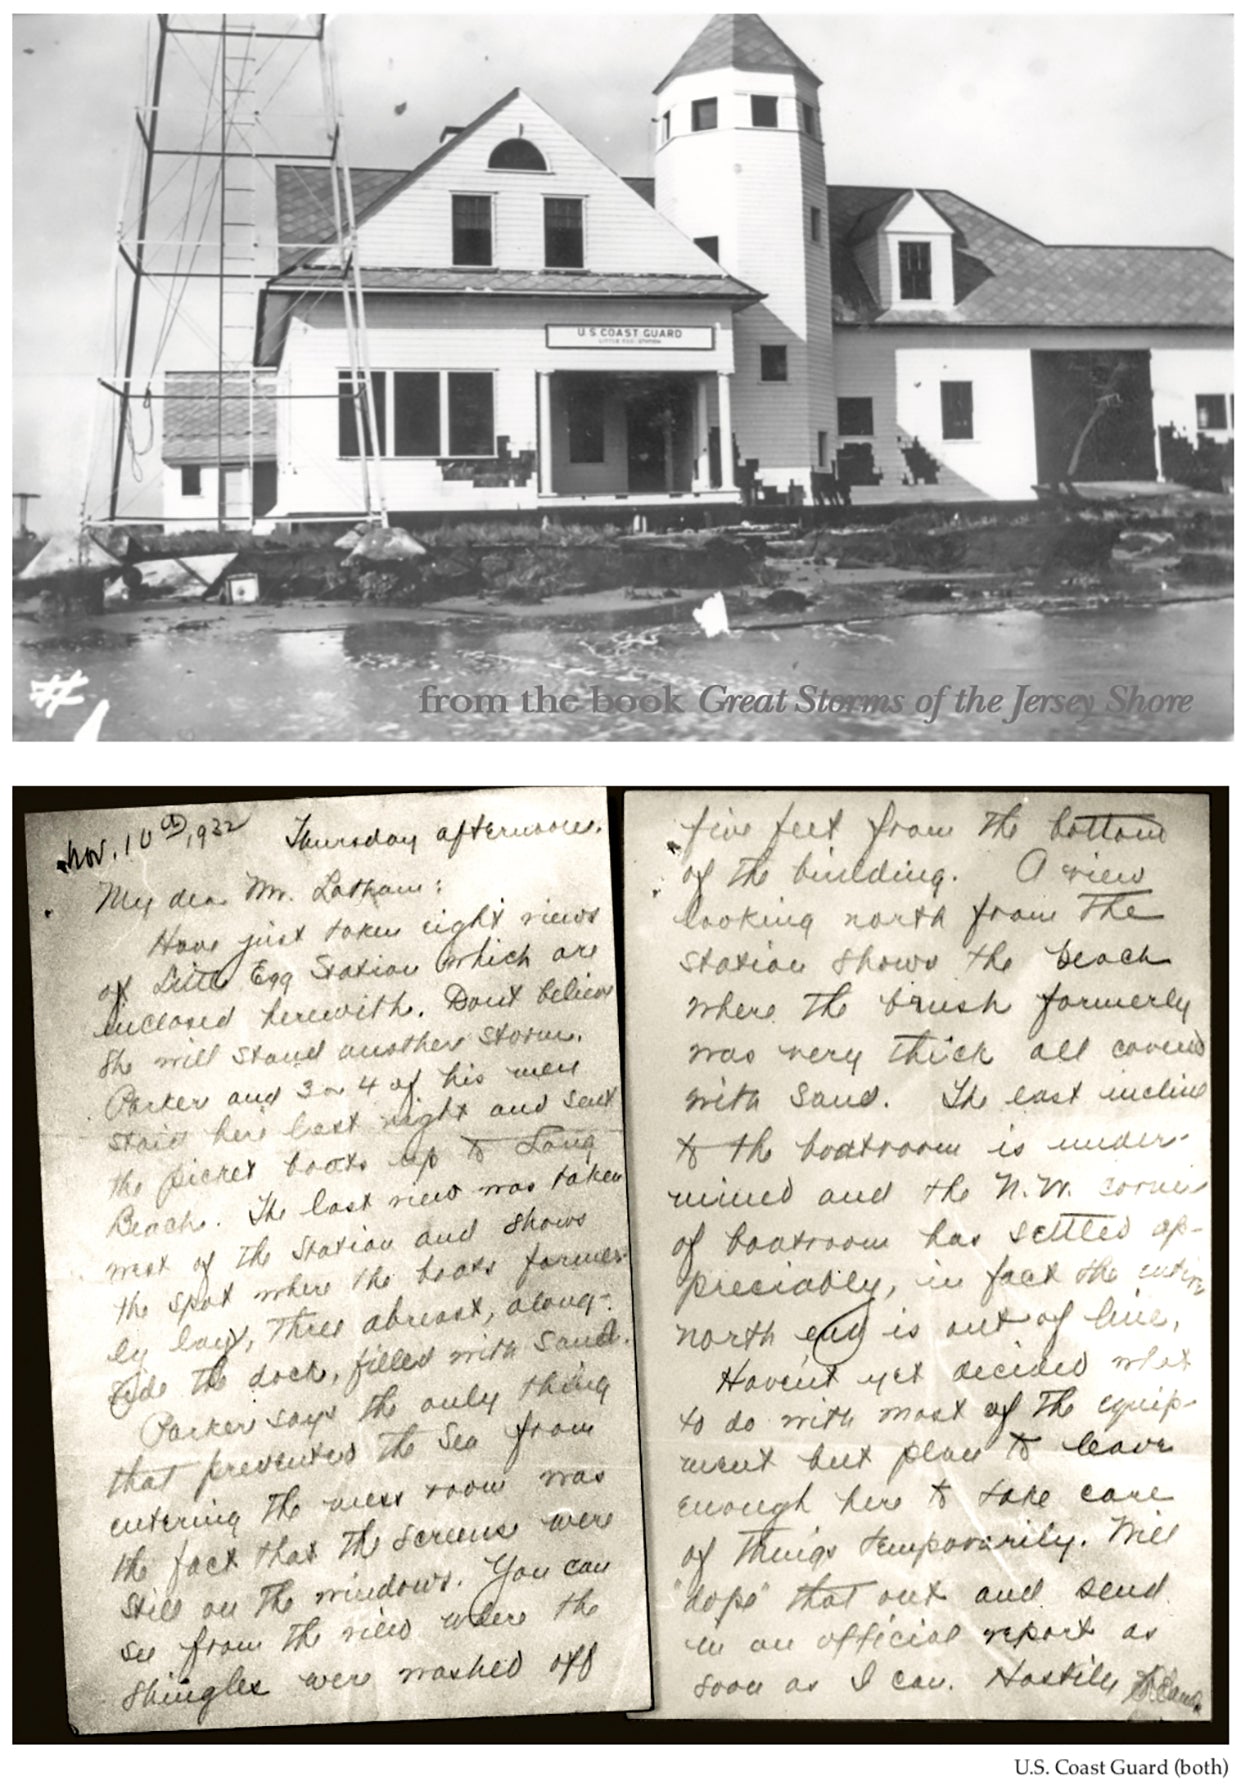 U.S. COAST GUARD
LITTLE EGG STATION
# 1
from the book Great Storms of the Jersey Shore
Nov. 10th, 1932 Thursday afternoon.
My dear Mr. Latham:
Have just taken eight views
of Little Egg Station which are
inclosed herewith. Dont believe
she will stand another storm.
Parker and 3 or 4 of his men
staid here last night and sent
the picket boats up to Long
Beach. The last view was taken
west of the station and shows
the spot where the boats former-
ly lay, three abreast, along-
side the dock, filled with sand.
Parker says the only thing
that prevented the sea from
entering the mess room was
the fact that the screens were
still on the windows. You can
see from the view where the
shingles were washed off
five feet from the bottom
of the building. A view
looking north from the
station shows the beach
where the brush formerly
was very thick all covered
with sand. The east incline
to the boatroom is under-
mined and the N.W. corner
of boatroom has settled ap-
preciably, in fact the entire
north end is out of line.
Haven't yet decided what
to do with most of the equip-
ment but plan to leave
enough here to take care
of things temporarily. Will
"dope" that out and send
in an official report as
soon as I can. Hastily
U.S. Coast Guard (both)